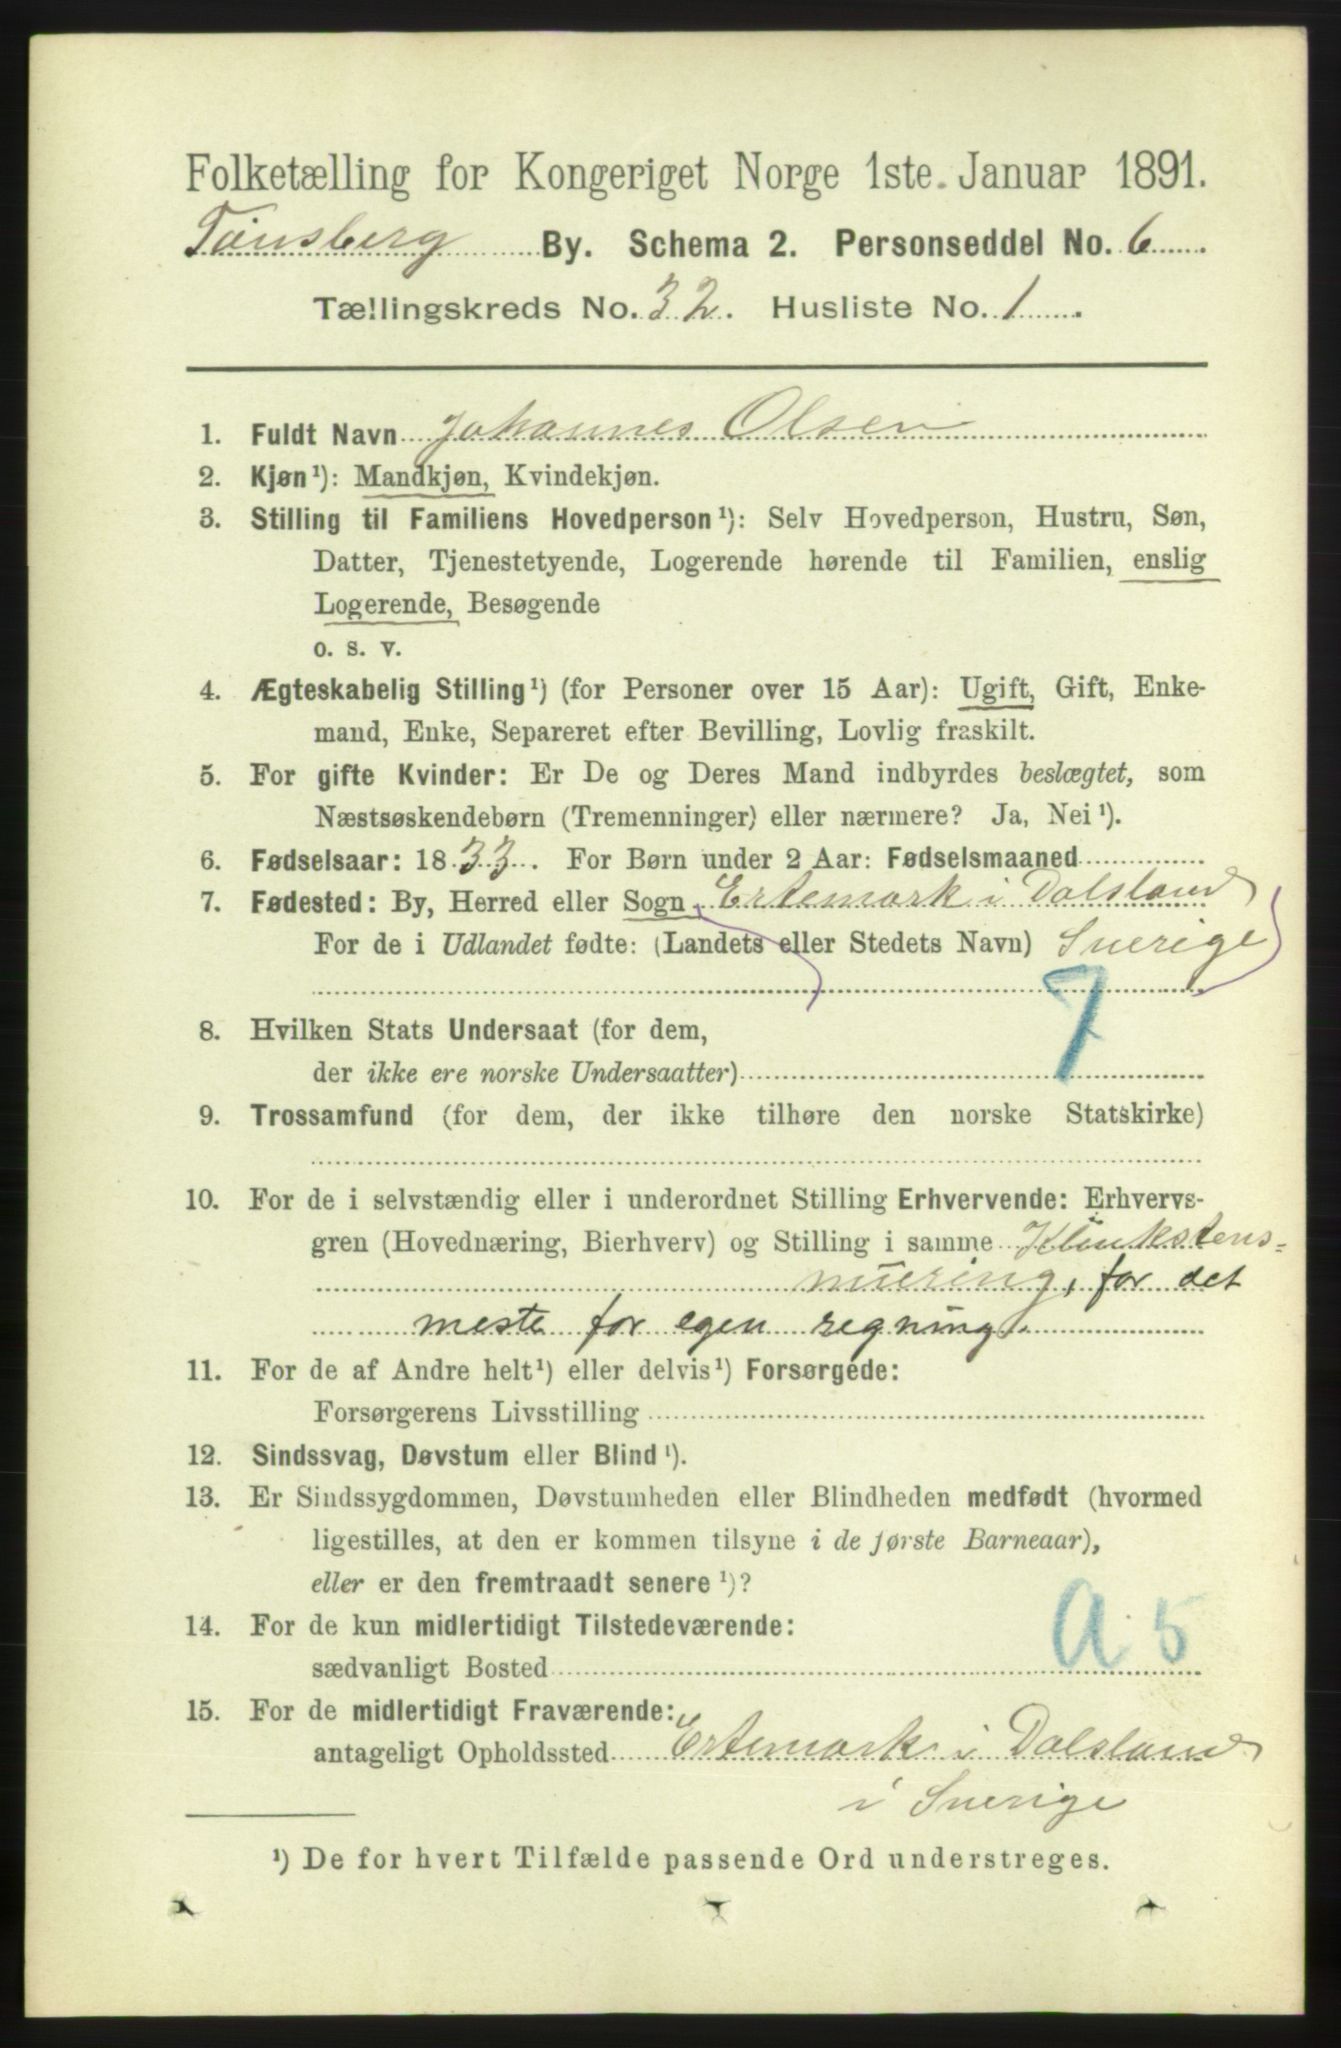 Folketælling for Kongeriget Norge 1ste Januar 1891.
Tønsberg By. Schema 2. Personseddel No. 6
Tællingskreds No. 32. Husliste No. 1.
1. Fuldt Navn Johannes Olsen
2. Kjøn¹): Mandkjøn, Kvindekjøn.
3. Stilling til Familiens Hovedperson¹): Selv Hovedperson, Hustru, Søn,
Datter, Tjenestetyende, Logerende hørende til Familien, enslig
Logerende, Besøgende
o. s. v.
4. Ægteskabelig Stilling¹) (for Personer over 15 Aar): Ugift, Gift, Enke-
mand, Enke, Separeret efter Bevilling, Lovlig fraskilt.
5. For gifte Kvinder: Er De og Deres Mand indbyrdes beslægtet, som
Næstsøskendebørn (Tremenninger) eller nærmere? Ja, Nei¹).
6. Fødselsaar: 1833. For Børn under 2 Aar: Fødselsmaaned
7. Fødested: By, Herred eller Sogn Ertemark i Dalsland
For de i Udlandet fødte: (Landets eller Stedets Navn) Sverige
7
8. Hvilken Stats Undersaat (for dem,
der ikke ere norske Undersaatter)
9. Trossamfund (for dem, der ikke tilhøre den norske Statskirke)
10. For de i selvstændig eller i underordnet Stilling Erhvervende: Erhvervs-
gren (Hovednæring, Bierhverv) og Stilling i samme Klinkstens-
muering, for det
meste for egen regning.
11. For de af Andre helt¹) eller delvis¹) Forsørgede:
Forsørgerens Livsstilling
12. Sindssvag, Døvstum eller Blind¹).
13. Er Sindssygdommen, Døvstumheden eller Blindheden medfødt (hvormed
ligestilles, at den er kommen tilsyne i de første Barneaar),
eller er den fremtraadt senere¹)?
14. For de kun midlertidigt Tilstedeværende:
sædvanligt Bosted
a. 5
15. For de midlertidigt Fraværende:
antageligt Opholdssted Ertemark i Dalsland
i Sverige
¹) De for hvert Tilfælde passende Ord understreges.